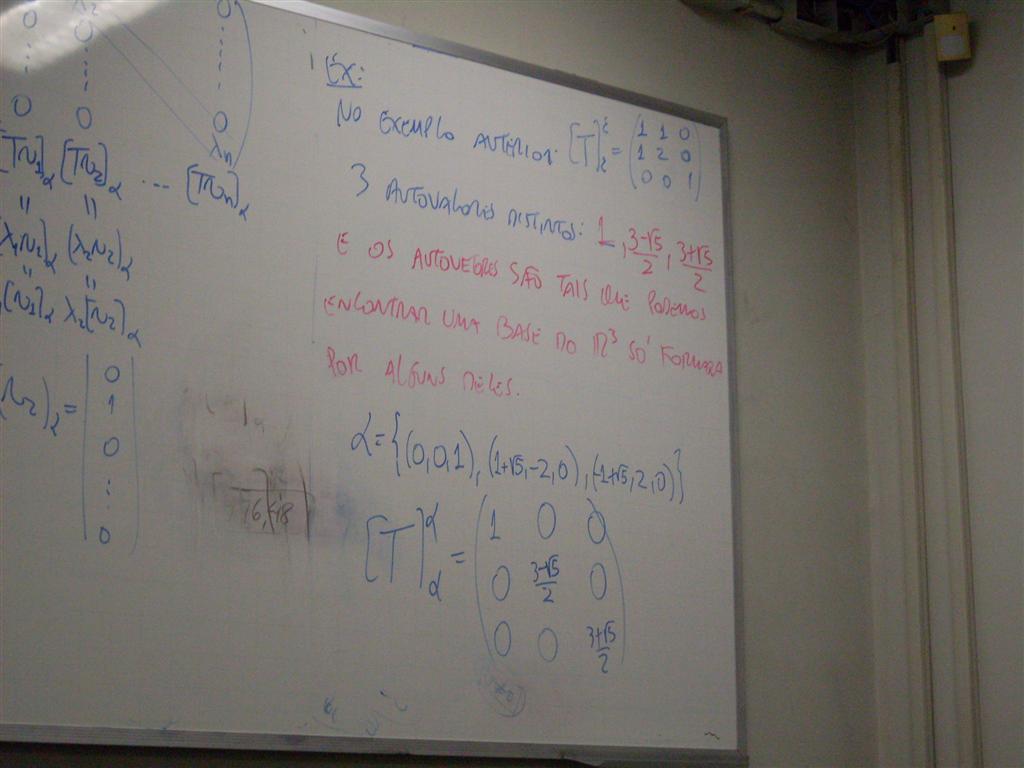 0 λ2 0
⋮ 0 ⋮
0 0 0
λn
[Tv1]α [Tv2]α ... [Tvn]α
" "
(λ2v2)α
" "
[v1]α λ2[v2]α
(v2)α = | 0 1 0 ⋮ 0 |
Ex:
NO EXEMPLO ANTERIOR: [T]^ε_ε = (1 1 0
1 2 0
0 0 1)
3 AUTOVALORES DISTINTOS: 1, (3-√5)/2, (3+√5)/2
E OS AUTOVETORES SÃO TAIS QUE PODEMOS
ENCONTRAR UMA BASE DO R³ SÓ FORMADA
POR ALGUNS DELES.
α={(0,0,1), (1+√5,-2,0), (-1+√5,2,0)}
[T]^α_α = (1 0 0
0 (3-√5)/2 0
0 0 (3+√5)/2)